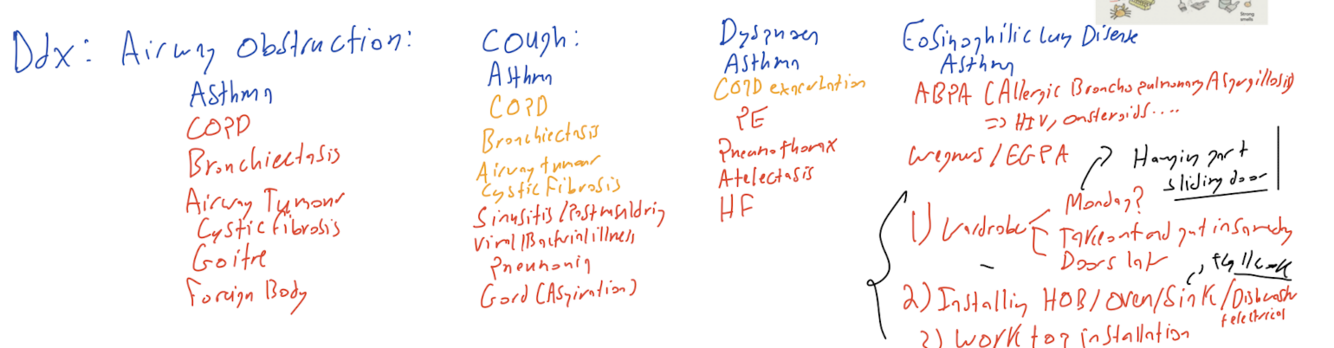 Ddx: Airway Obstruction:
Asthma
COPD
Bronchiectasis
Airway Tumour
Cystic fibrosis
Goitre
Foreign Body
Cough:
Asthma
COPD
Bronchiectasis
Airway tumour
Cystic Fibrosis
Sinusitis / Postnasal drip
Viral/Bacterial illness
Pneumonia
Gord (Aspiration)
Dyspnoea
Asthma
COPD exacerbation
PE
Pneumothorax
Atelectasis
HF
Eosinophilic Lung Disease
Asthma
ABPA (Allergic Broncho pulmonary Aspergillosis)
=> HIV, on steroids....
Wegners / EGPA
Hanging part
sliding door
1) Wardrobe
Monday?
Take out and put in same day
Doors late
2) Installing HOB / Oven / Sink / Dishwasher
+ electrical
3) Work top installation
Strong
smells